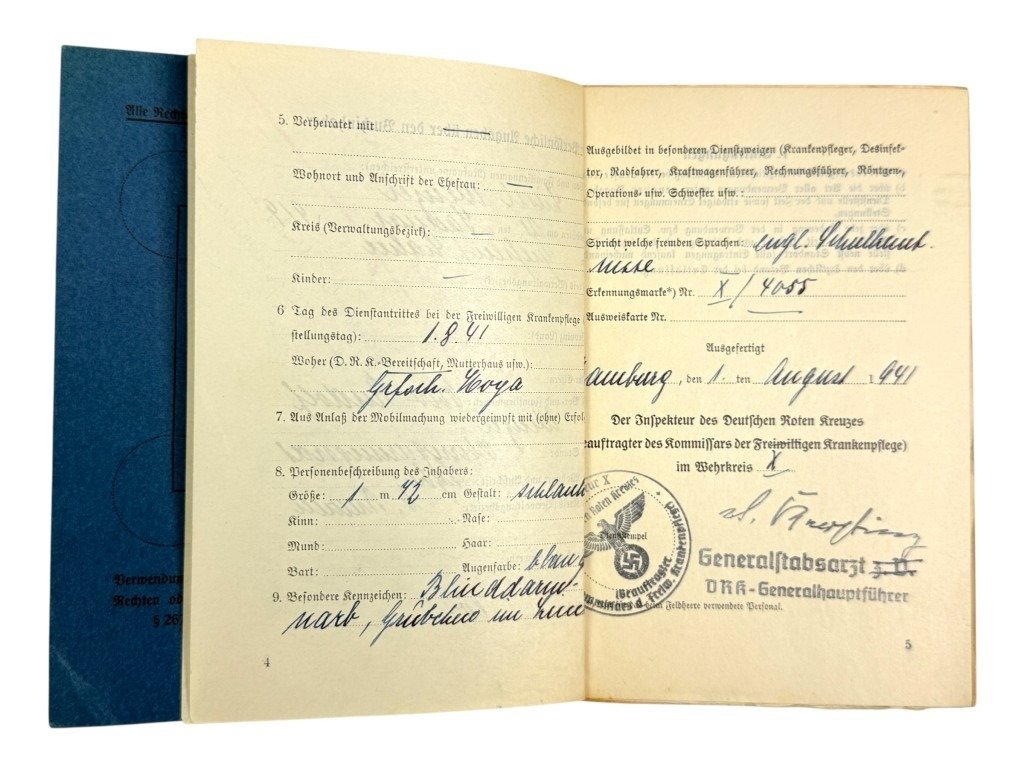 Alle Rech
Verwendun
Rechten od
§ 26
5. Verheiratet mit
Wohnort und Anschrift der Ehefrau: —
Kreis (Verwaltungsbezirk): —
Kinder: —
6 Tag des Dienstantrittes bei der Freiwilligen Krankenpflege
stellungstag): 1.8.41
Woher (D.R.K.-Bereitschaft, Mutterhaus usw.):
Hoya
7. Aus Anlaß der Mobilmachung wiedergeimpft mit (ohne) Erfol
8. Personenbeschreibung des Inhabers:
Größe: 1 m 72 cm Gestalt: schlank
Kinn: Nase:
Mund: Haar:
Bart: Augenfarbe: blau
9. Besondere Kennzeichen: Blinddarm-
narb, Grübchen im
4
Ausgebildet in besonderen Dienstzweigen (Krankenpfleger, Desinfek-
tor, Radfahrer, Kraftwagenführer, Rechnungsführer, Röntgen-,
Operations- usw. Schwester usw.:
Spricht welche fremden Sprachen: engl. Schulkennt-
nisse
Erkennungsmarke*) Nr. X / 4055
Ausweiskarte Nr.
Ausgefertigt
amburg, den 1. ten August 1941
Der Inspekteur des Deutschen Roten Kreuzes
eauftragter des Kommissars der Freiwilligen Krankenpflege)
im Wehrkreis X
ur X
Roten Kreuzes
Dienststempel
(Beauftragter
d. Freiw. Krankenpflege)
Generalstabsarzt z.V.
DRK-Generalhauptführer
beim Feldheere verwendete Personal.
5